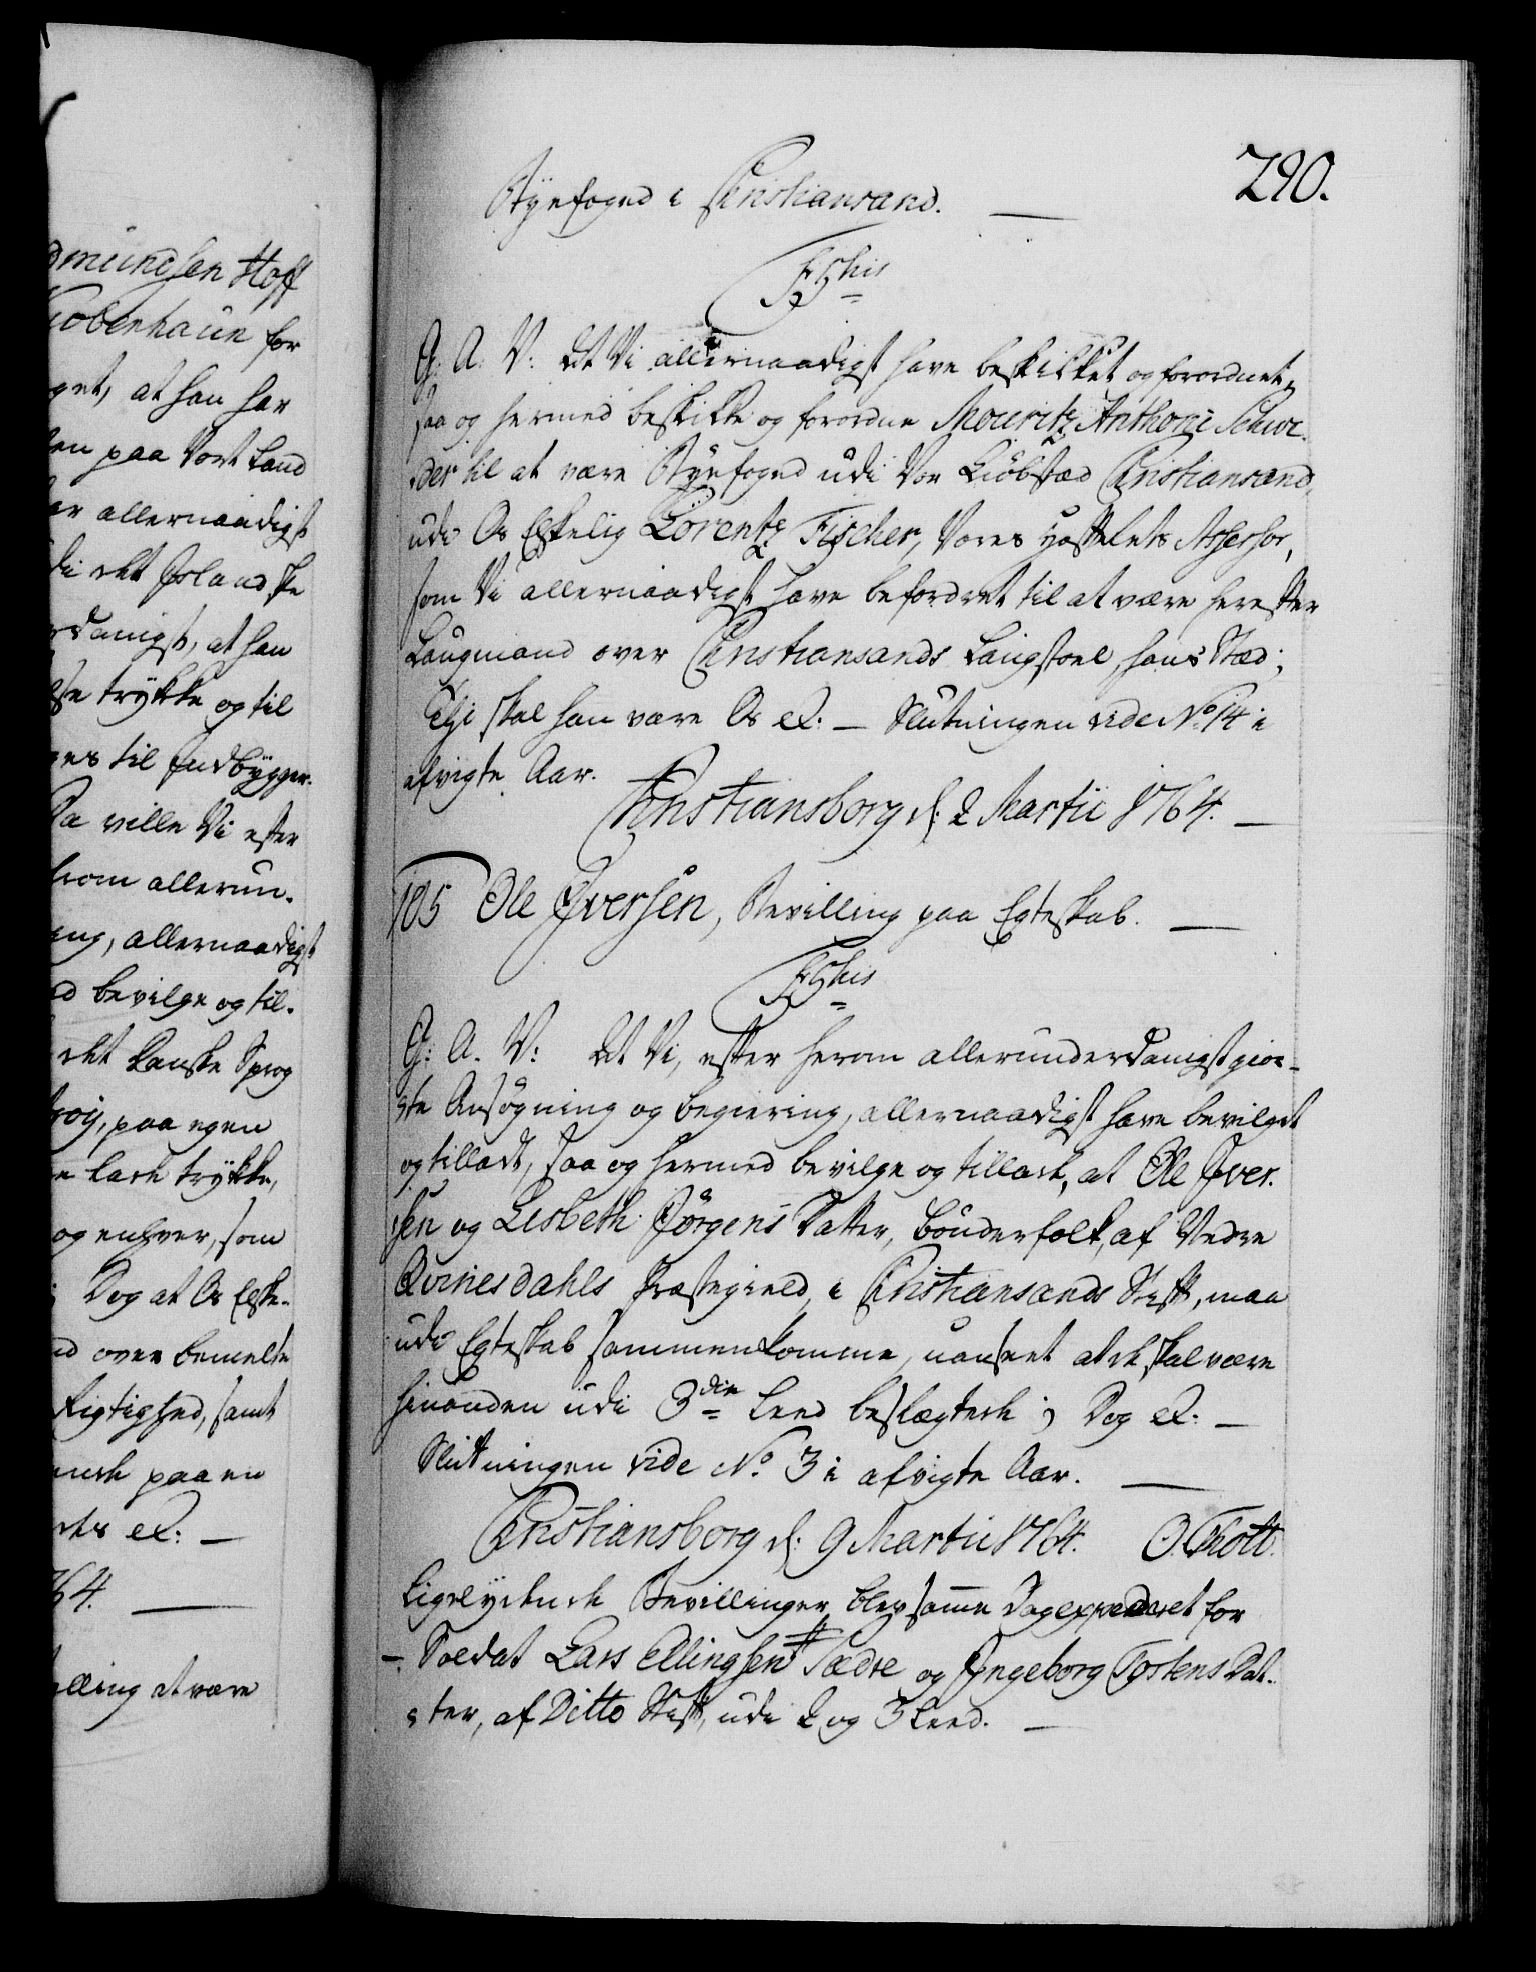 290.
Byefoged i Christiansand. —
F 5this
G. A. V: At Vi allernaadigst have beskikket og forordnet,
saa og hermed beskikke og forordne Mouritz Anthoni Schre-
der til at være Byefoged udi Vor Kiöbstæd Christiansand,
udi Os Elskelig Lorentz Fischer, Vores Hofrets Assessor,
som Vi allernaadigst have befordret til at være herefter
Laugmand over Christiansands Laugstoel, hans Stæd;
Thi skal han være Os &c: — Slutningen vide No. 14 i
afvigte Aar.
Christiansborg d: 2 Martii 1764. —
105 Ole Iversen, Bevilling paa Egteskab. —
F 5this
G: A. V: At Vi, efter herom allerunderdanigst gior-
te Ansögning og begiering, allernaadigst have bevilget
og tilladt, saa og hermed bevilge og tillade, at Ole Iver-
sen og Lisbeth Jörgens Datter, bönderfolk, af Nedre
Qvinesdahls Præstegield, i Christiansands Stift, maa
udi Egteskab sammenkomme, uanseet at de skal være
hinanden udi 3die Leed beslægtede; Dog &c. —
Slutningen vide No. 3 i afvigte Aar. —
Christiansborg d: 9 Martii 1764. O. Thott.
Ligelydende Bevillinger blev samme Dag expederet for
—. Soldat Lars Ellingsen Sædre og Ingeborg Tostens Dat-
ter, af Ditto Stift, udi 2 og 3 Leed. —
dmundsen Hoff
Kiobenhaun for
get, at han har
en paa Vort Land
ar allernaadigst
di det Islandske
rdanigst, at han
lse trykke og til
ges til Indbygger-
Da ville Vi efter
herom allerun-
ing, allernaadigst
ed bevilge og til-
det Danske Sprog
troij, paa egen
e lade trykke,
og enhver, som
; Dog at Os Elske-
ed over bemelte
Rigtighed, samt
ende paa en
des &c: —
64. —
illing at være